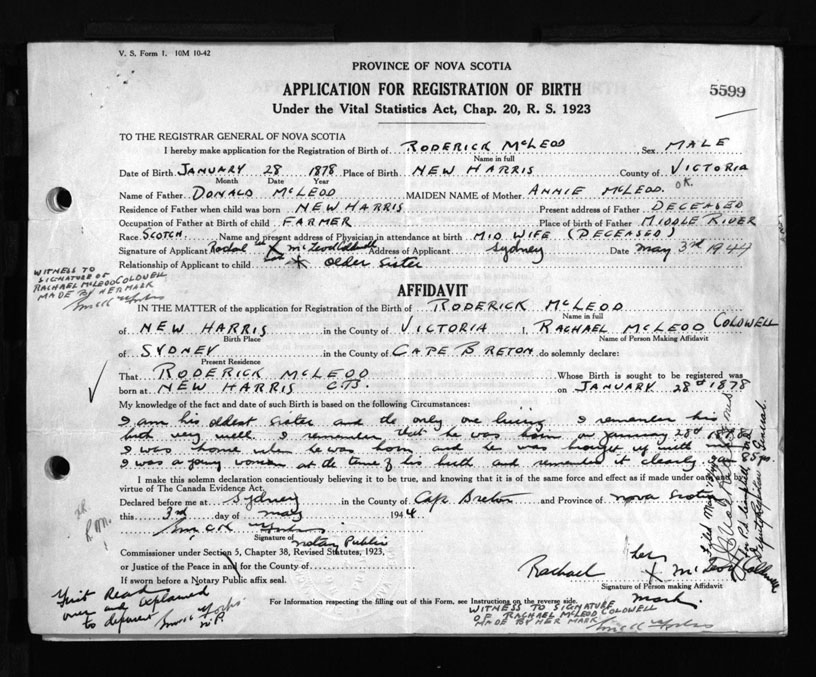 V. S. Form 1. 10M 10-42
PROVINCE OF NOVA SCOTIA
APPLICATION FOR REGISTRATION OF BIRTH
5599
Under the Vital Statistics Act, Chap. 20, R. S. 1923
TO THE REGISTRAR GENERAL OF NOVA SCOTIA
I hereby make application for the Registration of Birth of RODERICK McLEOD, Sex MALE
Name in full
Date of Birth JANUARY 28 1878 Place of Birth NEW HARRIS County of VICTORIA
Month Date Year
OK.
Name of Father DONALD McLEOD MAIDEN NAME of Mother ANNIE McLEOD.
Residence of Father when child was born NEW HARRIS Present address of Father DECEASED
Occupation of Father at Birth of child FARMER Place of birth of Father MIDDLE RIVER
Race SCOTCH Name and present address of Physician in attendance at birth MID WIFE (DECEASED)
Signature of Applicant X McLeod Address of Applicant Sydney Date May 3rd 1944
Relationship of Applicant to child older sister
WITNESS TO
SIGNATURE OF
RACHAEL McLEOD COLDWELL
MADE BY HER MARK
AFFIDAVIT
IN THE MATTER of the application for Registration of the Birth of RODERICK McLEOD
Name in full
of NEW HARRIS in the County of VICTORIA I, RACHAEL McLEOD COLDWELL
Birth Place Name of Person Making Affidavit
of SYDNEY in the County of CAPE BRETON do solemnly declare:
Present Residence
That RODERICK McLEOD Whose Birth is sought to be registered was
born at NEW HARRIS C.B. on JANUARY 28th 1878
My knowledge of the fact and date of such Birth is based on the following Circumstances:
I am his oldest sister and the only one living I remember his
birth very well. I remember that he was born on January 28th 1878
I was home when he was born and he was brought up with
I was a young woman at the time of his birth and remember it clearly
I make this solemn declaration conscientiously believing it to be true, and knowing that it is of the same force and effect as if made under oath and by
virtue of The Canada Evidence Act.
Declared before me at Sydney in the County of Cape Breton and Province of Nova Scotia
this 3rd day of May 1944
Signature of
Notary Public
Commissioner under Section 5, Chapter 38, Revised Statutes, 1923,
or Justice of the Peace in and for the County of
If sworn before a Notary Public affix seal.
Rachael her X mark McLeod Coldwell
Signature of Person making Affidavit
For Information respecting the filling out of this Form, see Instructions on the reverse side.
First Read
over and explained
to deponent
N.P.
WITNESS TO SIGNATURE
OF RACHAEL McLEOD COLDWELL
MADE BY HER MARK